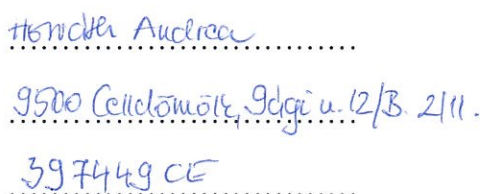 Horváth Andrea
9500 Celldömölk, Ság u. 12/B. 2/11.
397449 CE